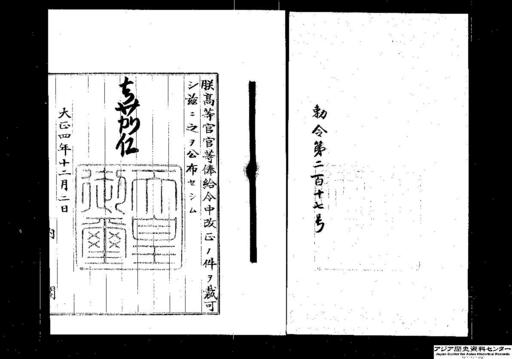 勅令第二百十七号
朕高等官官等俸給令中改正ノ件ヲ裁可
シ茲ニ之ヲ公布セシム
嘉仁
天皇御璽
大正四年十二月二日
内閣
アジア歴史資料センター
Japan Center for Asian Historical Records